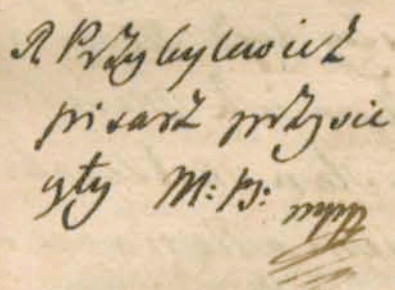 R Przybylowicz
pisarz przysie
gły M: B: mpp